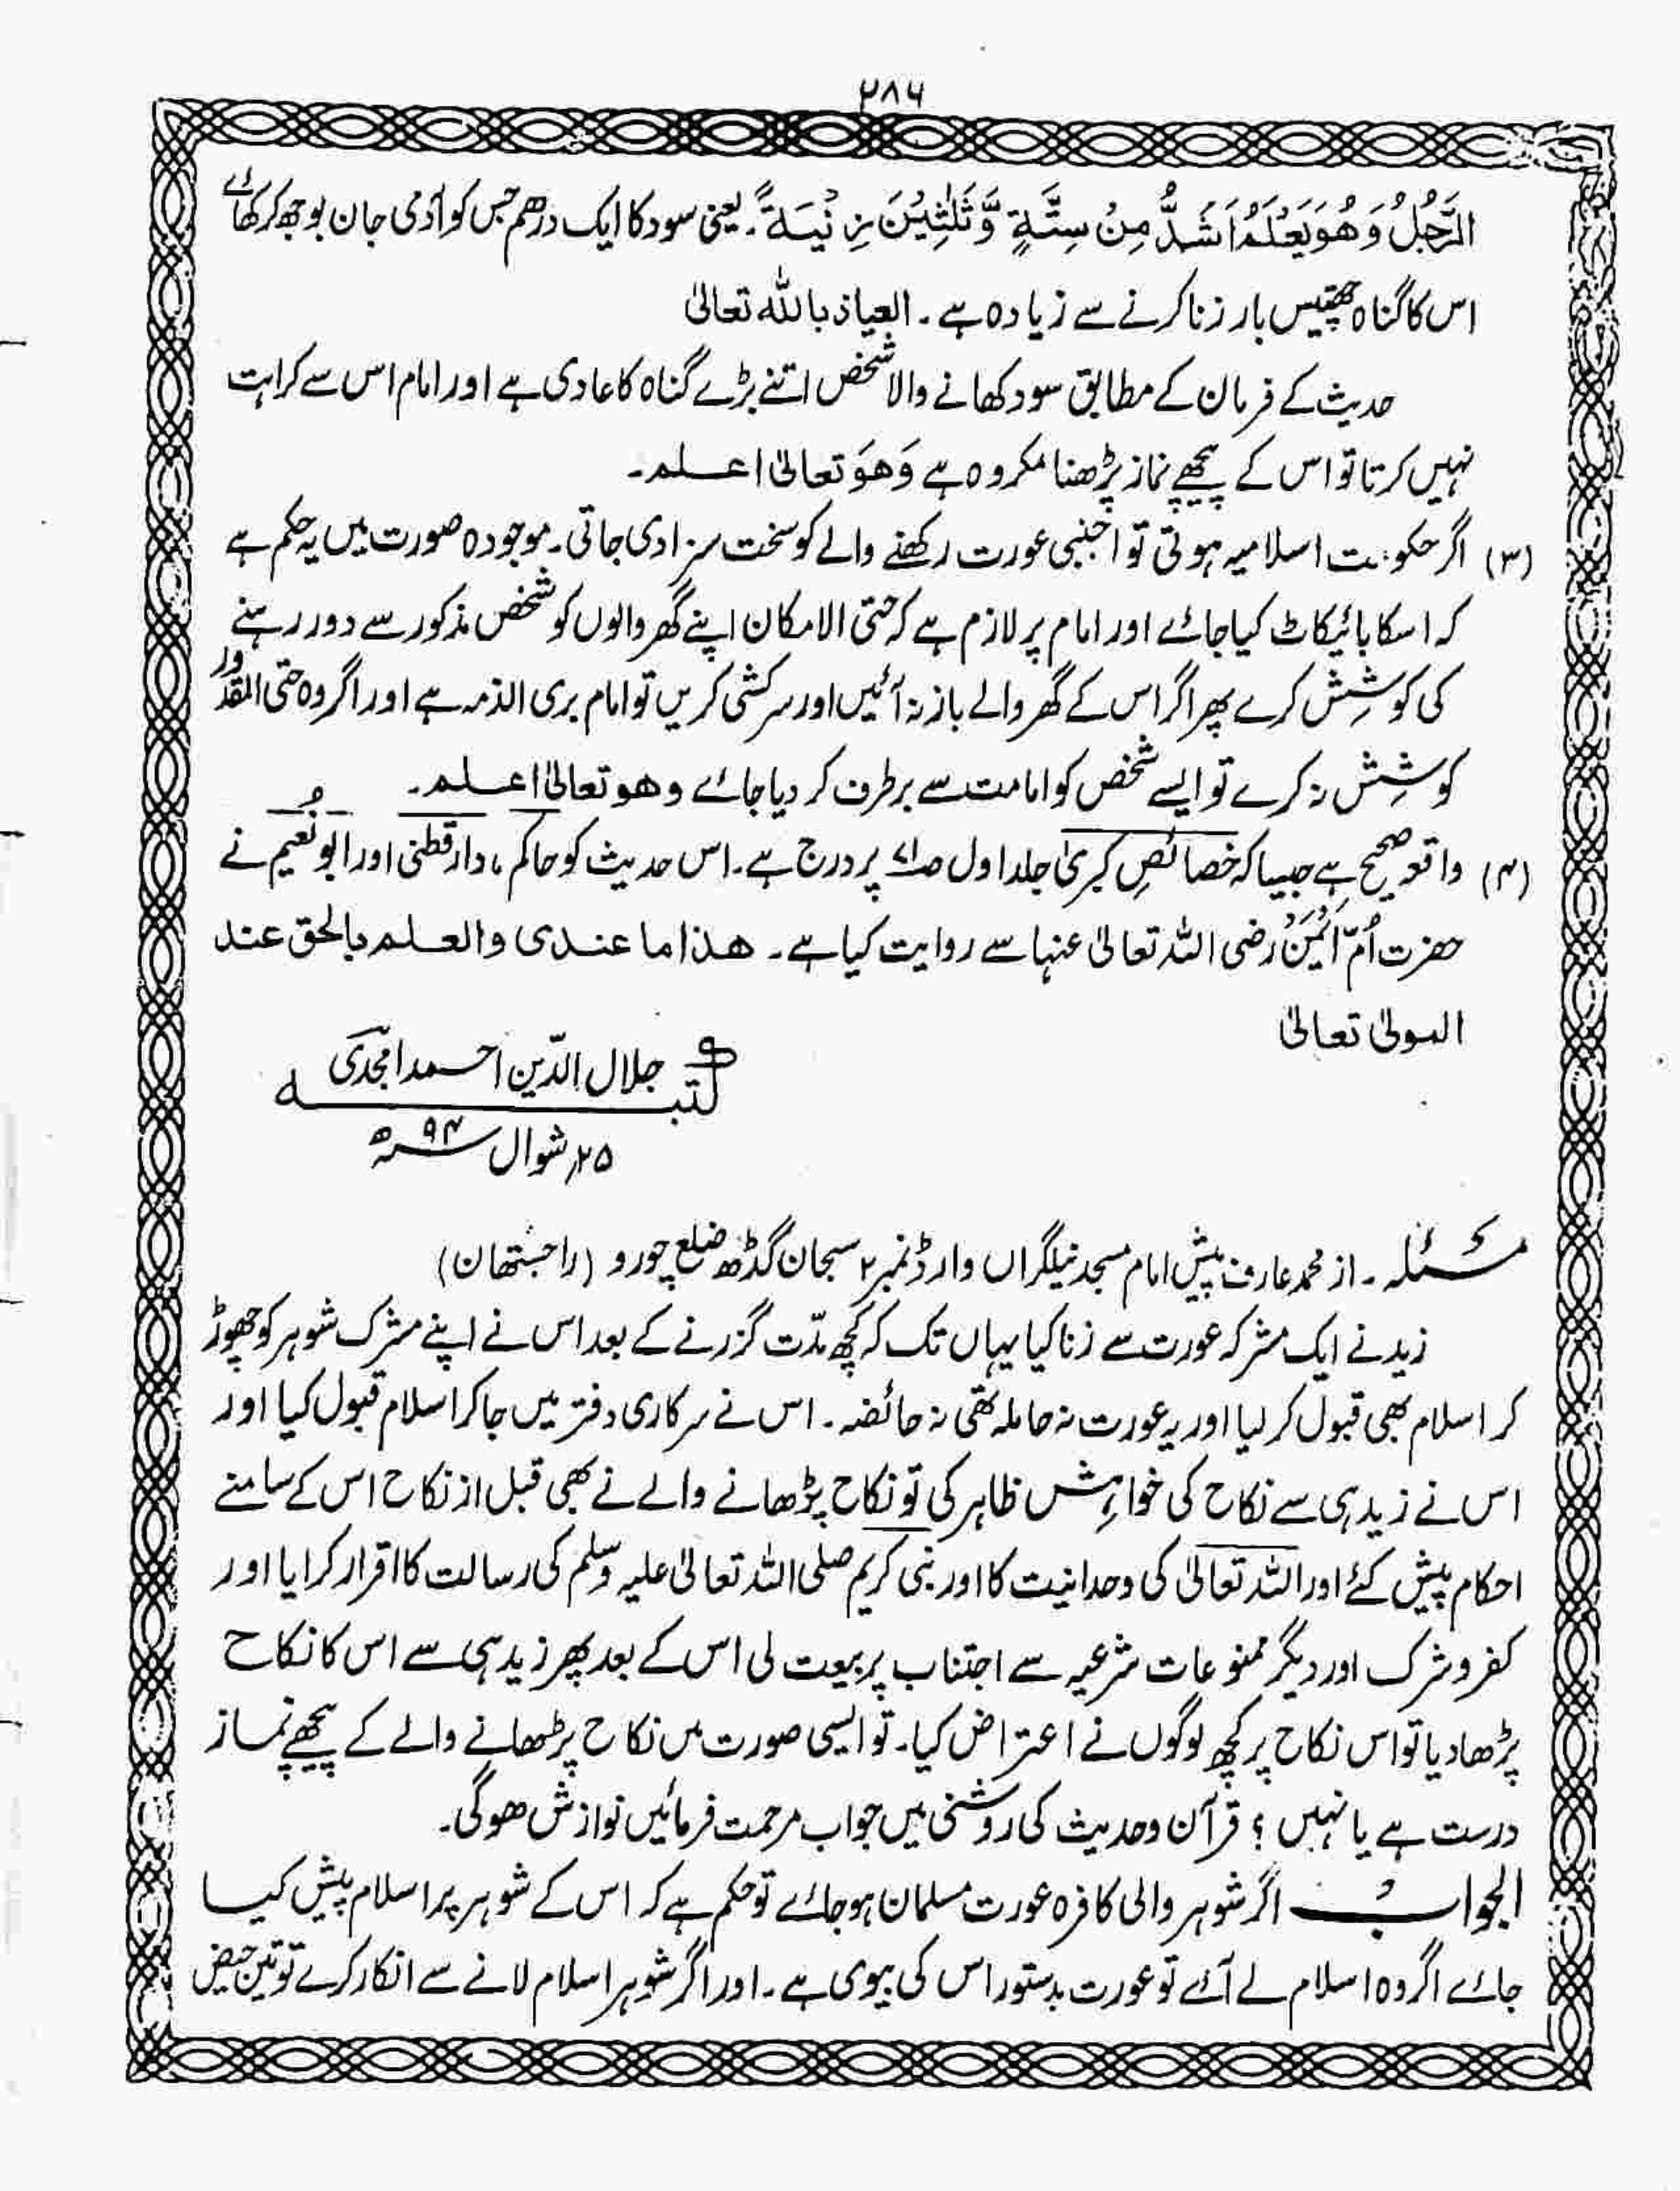 ۲۸۶
الرَّجُلُ وَهُوَ يَعْلَمُ اَشَدُّ مِنْ سِتَّةٍ وَّثَلٰثِيْنَ زِنْيَةً۔ یعنی سود کا ایک درھم جس کو آدمی جان بوجھ کر کھائے
اس کا گناہ چھتیس بار زنا کرنے سے زیادہ ہے۔ العیاذ باللہ تعالیٰ
حدیث کے فرمان کے مطابق سود کھانے والا شخص اتنے بڑے گناہ کا عادی ہے اور امام اس سے کراہت
نہیں کرتا تو اس کے پیچھے نماز پڑھنا مکروہ ہے وَھوَ تعالیٰ اعلم۔
(۳) اگر حکومت اسلامیہ ہوتی تو اجنبی عورت رکھنے والے کو سخت سزا دی جاتی۔ موجودہ صورت میں یہ حکم ہے
کہ اسکا بائیکاٹ کیا جائے اور امام پر لازم ہے کہ حتی الامکان اپنے گھر والوں کو شخص مذکور سے دور رہنے
کی کوشِشش کرے پھر اگر اس کے گھر والے باز نہ آئیں اور سرکشی کریں تو امام بری الذمہ ہے اور اگر وہ حتی المقدور
کوشِشش نہ کرے تو ایسے شخص کو امامت سے برطرف کر دیا جائے وھو تعالیٰ اعلم۔
(۴) واقعہ صحیح ہے جیسا کہ خصائصِ کبریٰ جلد اول صا۷ پر درج ہے۔ اس حدیث کو حاکم، دارقطنی اور ابونُعیم نے
حضرت اُمّ اَیْمَنْ رضی اللہ تعالیٰ عنہا سے روایت کیا ہے۔ ھذا ما عندی والعلم بالحق عند
المولیٰ تعالیٰ
کتبہ جلال الدّین احمد امجدی
۲۵؍ شوال ۹۴ھ
مسئلہ۔ از محمد عارف پیش امام مسجد نیلگراں وارڈ نمبر ۲ سجان گڈھ ضلع چورو (راجستھان)
زید نے ایک مشرکہ عورت سے زنا کیا یہاں تک کہ کچھ مدّت گزرنے کے بعد اس نے اپنے مشرک شوہر کو چھوڑ
کر اسلام بھی قبول کر لیا اور یہ عورت نہ حاملہ تھی نہ حائضہ۔ اس نے سرکاری دفتر میں جا کر اسلام قبول کیا اور
اس نے زید ہی سے نکاح کی خواہِشں ظاہر کی تو نکاح پڑھانے والے نے بھی قبل از نکاح اس کے سامنے
احکام پیش کئے اور اللہ تعالیٰ کی وحدانیت کا اور نبی کریم صلی اللہ تعالیٰ علیہ وسلم کی رسالت کا اقرار کرایا اور
کفر و شرک اور دیگر ممنوعات شرعیہ سے اجتناب پر بیعت لی اس کے بعد پھر زید ہی سے اس کا نکاح
پڑھا دیا تو اس نکاح پر کچھ لوگوں نے اعتراض کیا۔ تو ایسی صورت میں نکاح پڑھانے والے کے پیچھے نماز
درست ہے یا نہیں؟ قرآن و حدیث کی روشنی میں جواب مرحمت فرمائیں نوازش ھوگی۔
الجوابُ اگر شوہر والی کافرہ عورت مسلمان ہو جائے تو حکم ہے کہ اس کے شوہر پر اسلام پیش کیا
جائے اگر وہ اسلام لے آئے تو عورت بدستور اس کی بیوی ہے۔ اور اگر شوہر اسلام لانے سے انکار کرے تو تین حیض